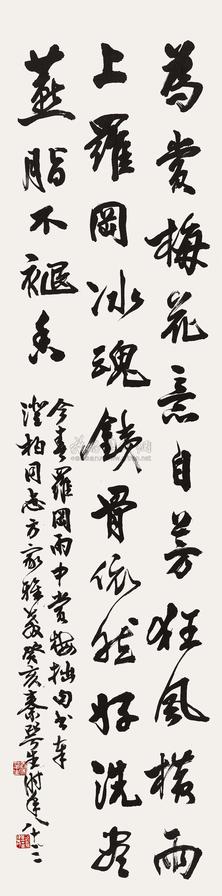 為賞梅花意自芳狂風橫雨
上羅岡冰魂鐵骨依然好洗盡
燕脂不褪香
今春羅岡雨中賞梅拙句書奉
澄柏同志方家雅教癸亥秦咢生時年八十二